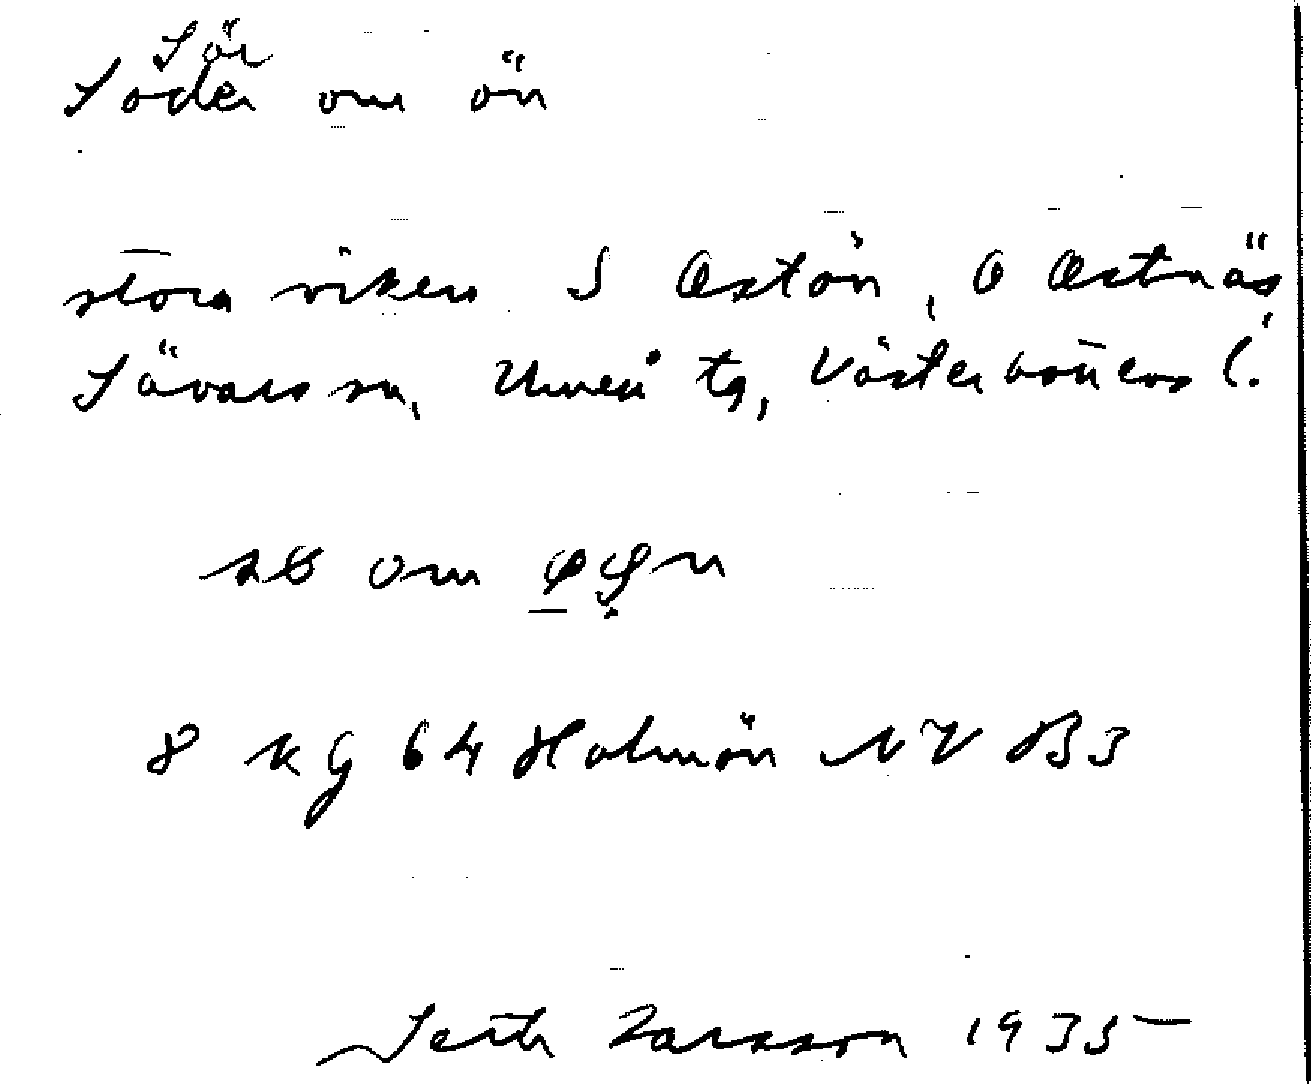 Sör
Söder om ön
stora viken S Ostön, O Ostnäs
Sävars sn, Umeå tg, Västerbottens l.
om
8 KG 64 Holmön NV B3
Seth Larsson 1935